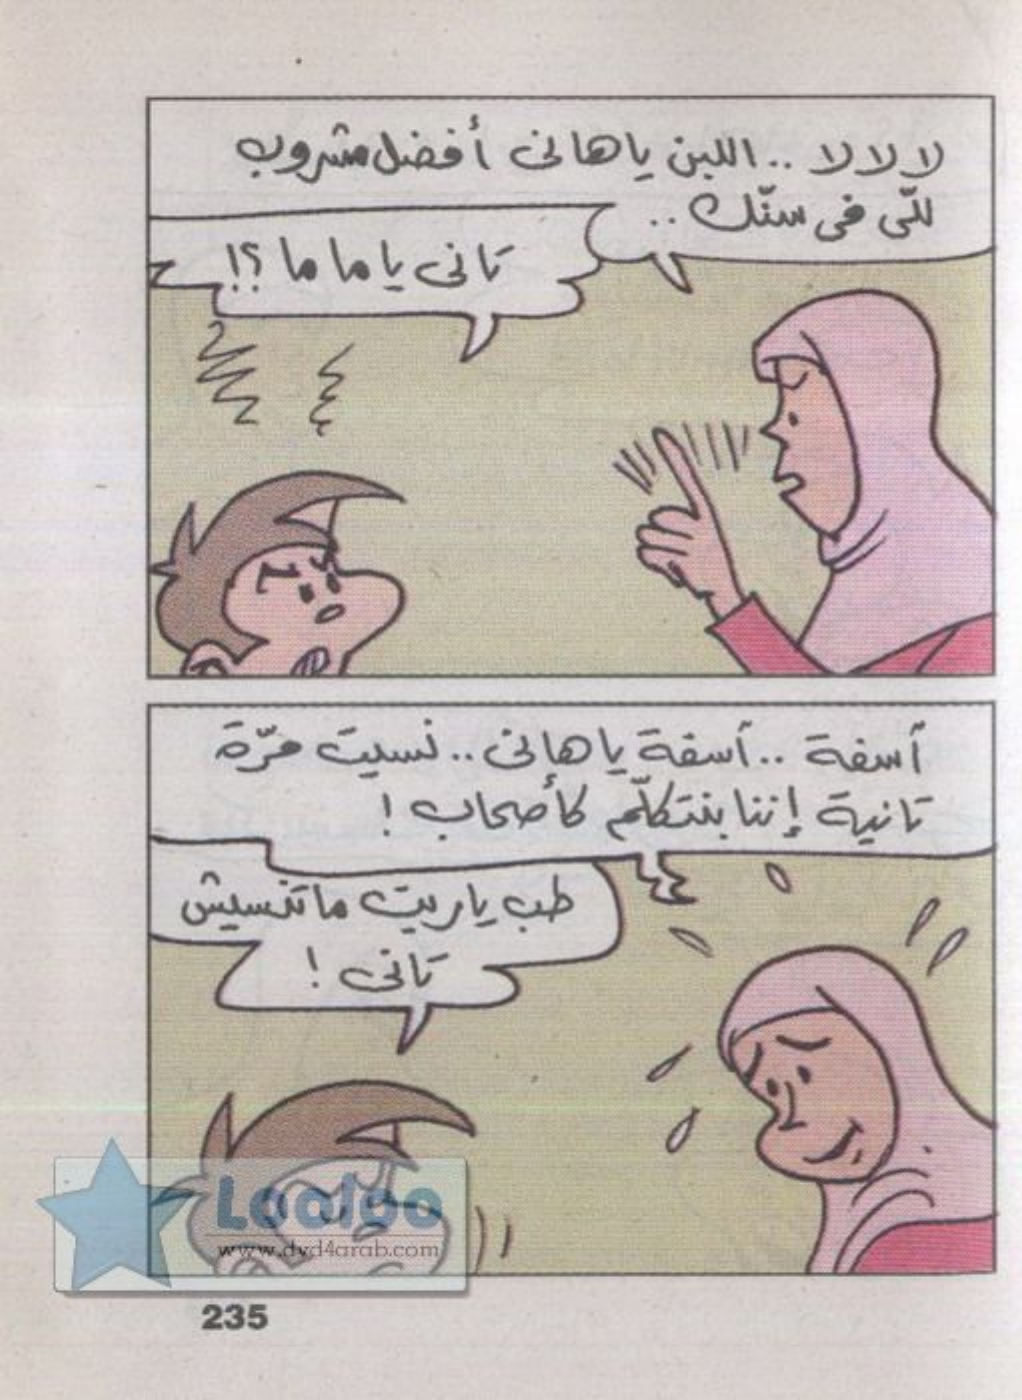 لا لا لا .. اللبن ياهانى أفضل مشروب
للّى فى سنّك ..
تانى يا ماما ؟!
آسفة .. آسفة ياهانى .. نسيت مرّة
تانية إننا بنتكلّم كأصحاب !
طب ياريت ماتنسيش
تانى !
Looloo
www.dvd4arab.com
235